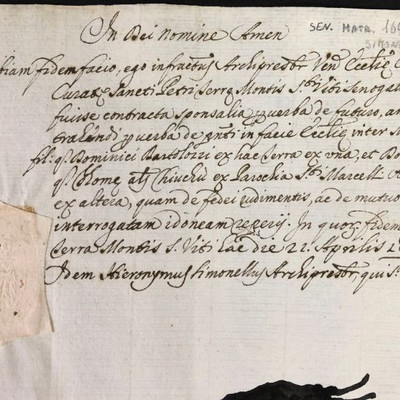 In Dei Nomine Amen
SEN. MATR. 164
SIMON
fidem facio, ego infractus Archipresbr Ven Ecclie
Curatæ Sancti Petri Serræ Montis Sti Viti Sinogal
fuisse contracta sponsalia p verba de futuro, an
p verba de in facie Ecclie inter M
fil: q. Dominici Bartolozzi ex hac Serra ex una, et Bo
q. ex Parochia S. Marcelli
ex altera, quam de fidei rudimentis, ac de mutuo
interrogatam idoneam In quor. fidem
Serra Montis S. Viti hac die 22 Aprilis 1
Idem Hieronymus Simonellus Archipresbr, qui s.